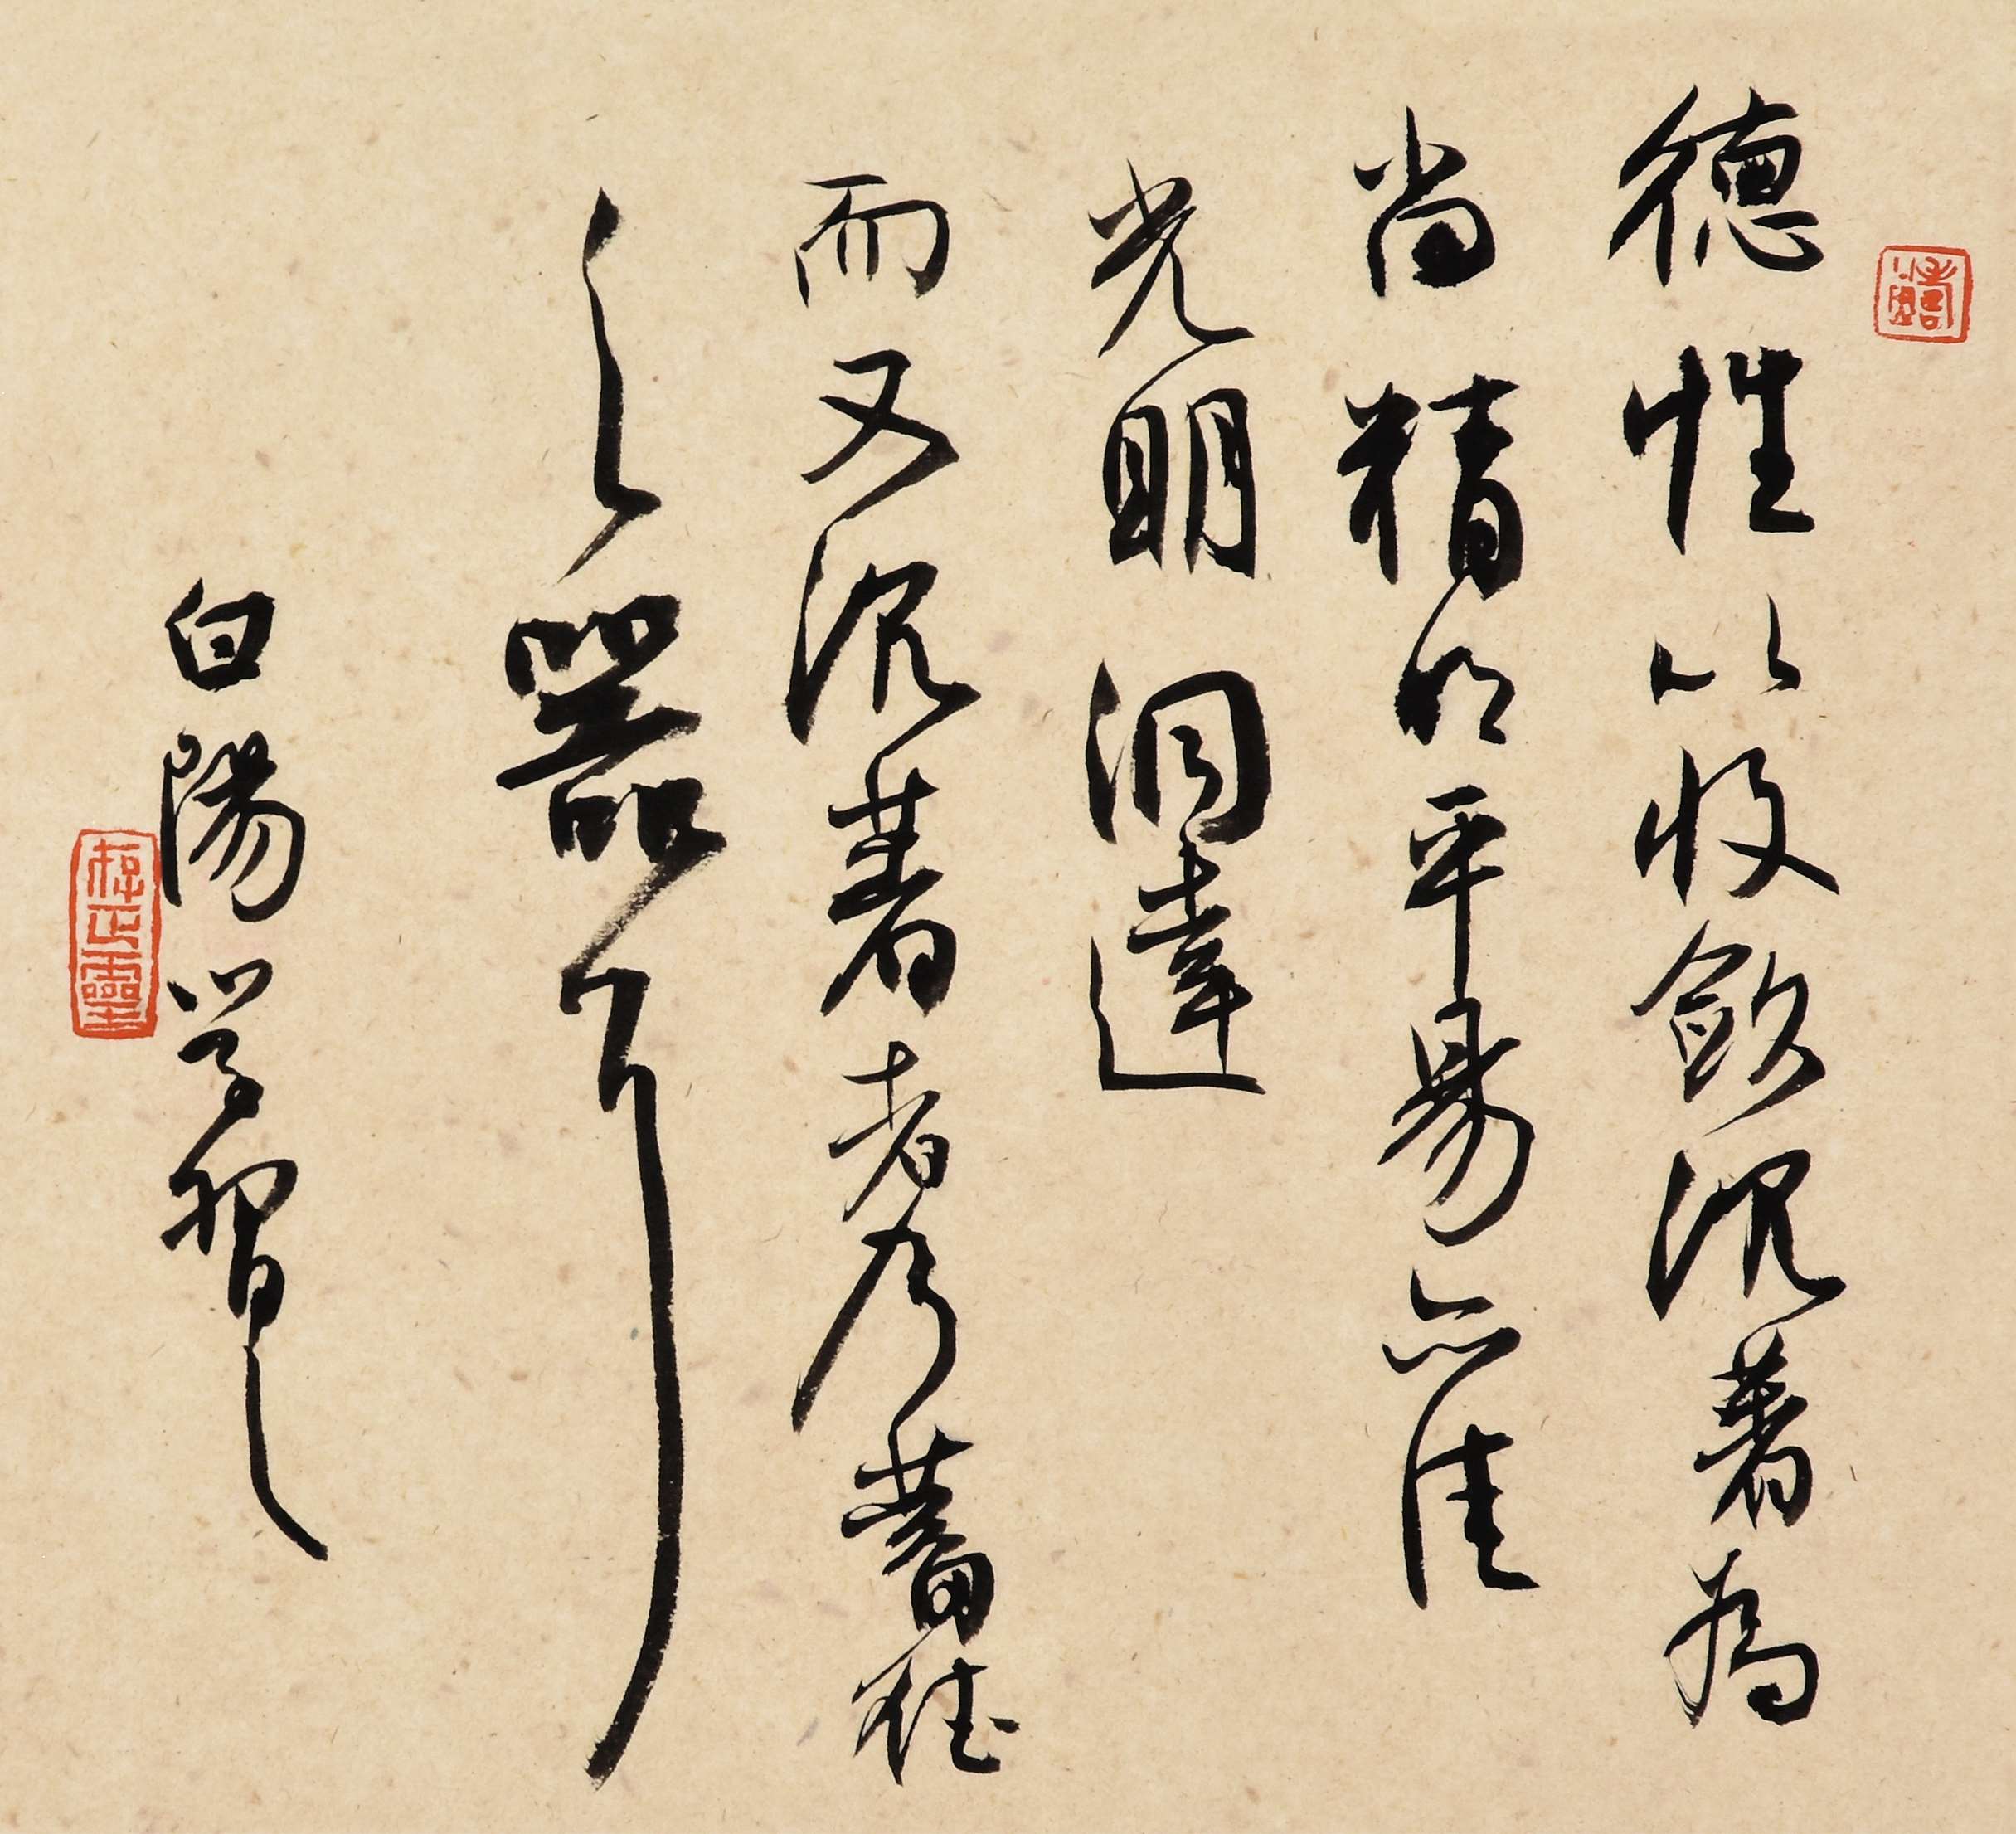 德性以收斂沉著為
尚精明平易亦佳
光明洞達
而又沉著者乃蓄
之器耳
白陽學習之